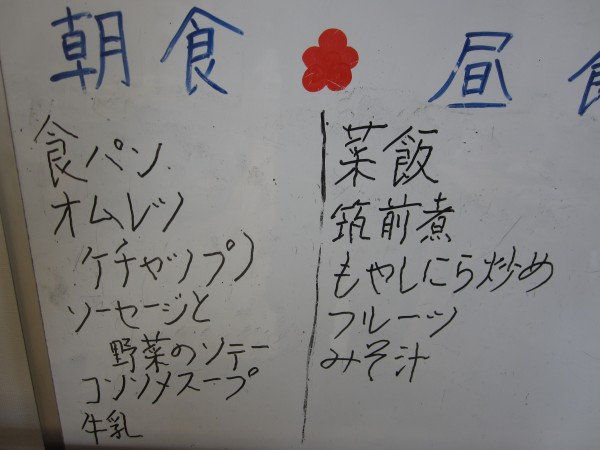 朝食
食パン
オムレツ
ケチャップ)
ソーセージと
野菜のソテー
コンソメスープ
牛乳
昼食
菜飯
筑前煮
もやしにら炒め
フルーツ
みそ汁